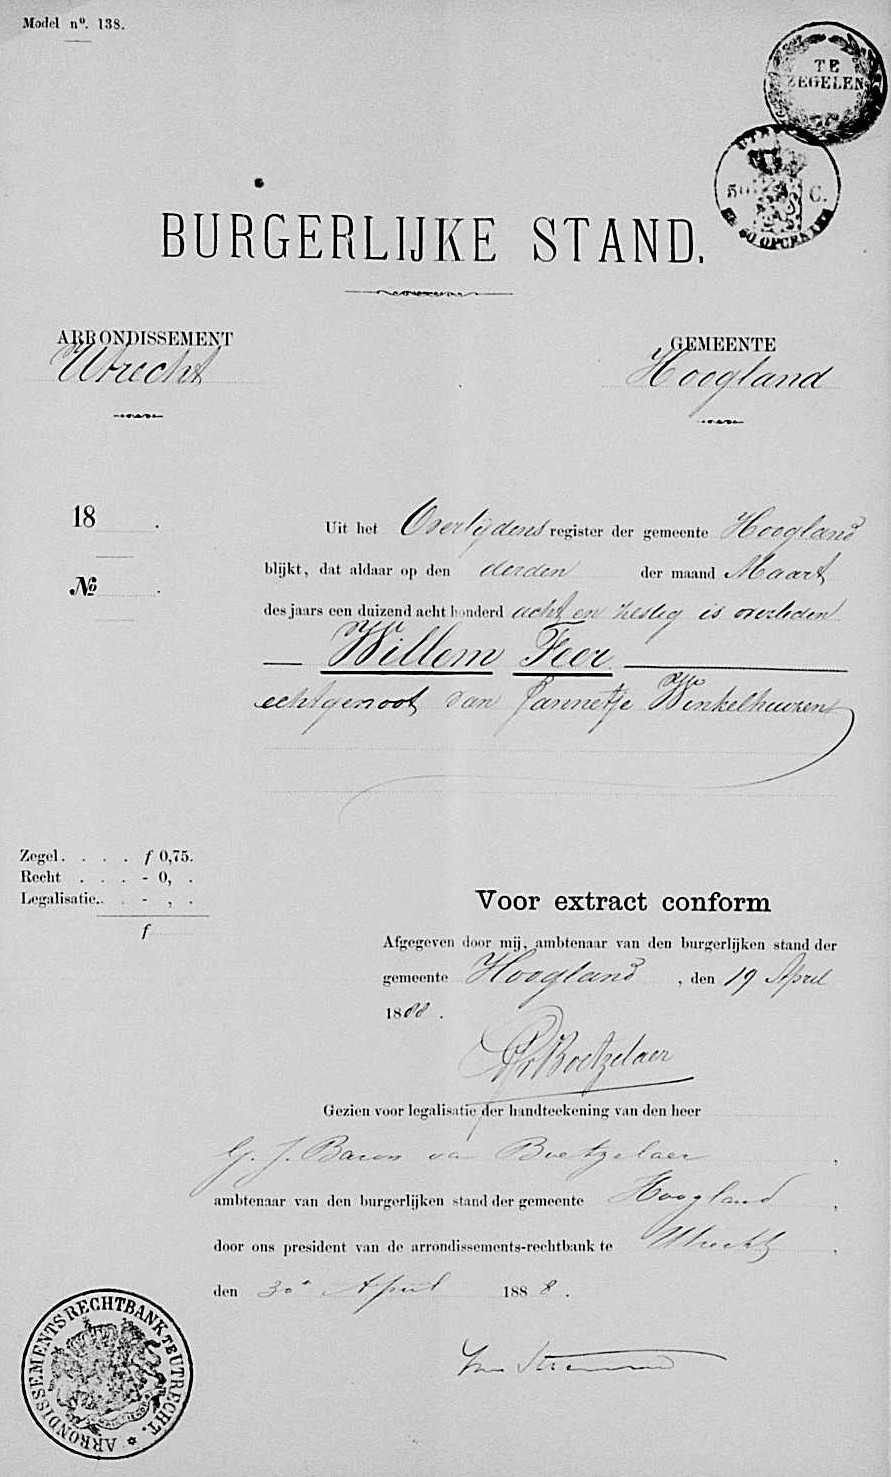 Model nº. 138.
TE
ZEGELEN
UTRECHT
50 C.
EN 50 OPCENTEN
BURGERLIJKE STAND.
ARRONDISSEMENT
Utrecht
GEMEENTE
Hoogland
18 .
Nº .
Uit het Overlijdens register der gemeente Hoogland
blijkt, dat aldaar op den derden der maand Maart
des jaars een duizend acht honderd acht en zestig is overleden
Willem Feer
echtgenoot van Jannetje Winkelhuizen
Zegel. . . . . f 0,75.
Recht . . . . - 0, .
Legalisatie. . . - , .
f
Voor extract conform
Afgegeven door mij, ambtenaar van den burgerlijken stand der
gemeente Hoogland , den 19 April
1888 .
Boetzelaer
Gezien voor legalisatie der handteekening van den heer
G. J. Baron van Boetzelaer ,
ambtenaar van den burgerlijken stand der gemeente Hoogland ,
door ons president van de arrondissements-rechtbank te Utrecht ,
den 30 April 1888 .
ARRONDISSEMENTSRECHTBANK TE UTRECHT.